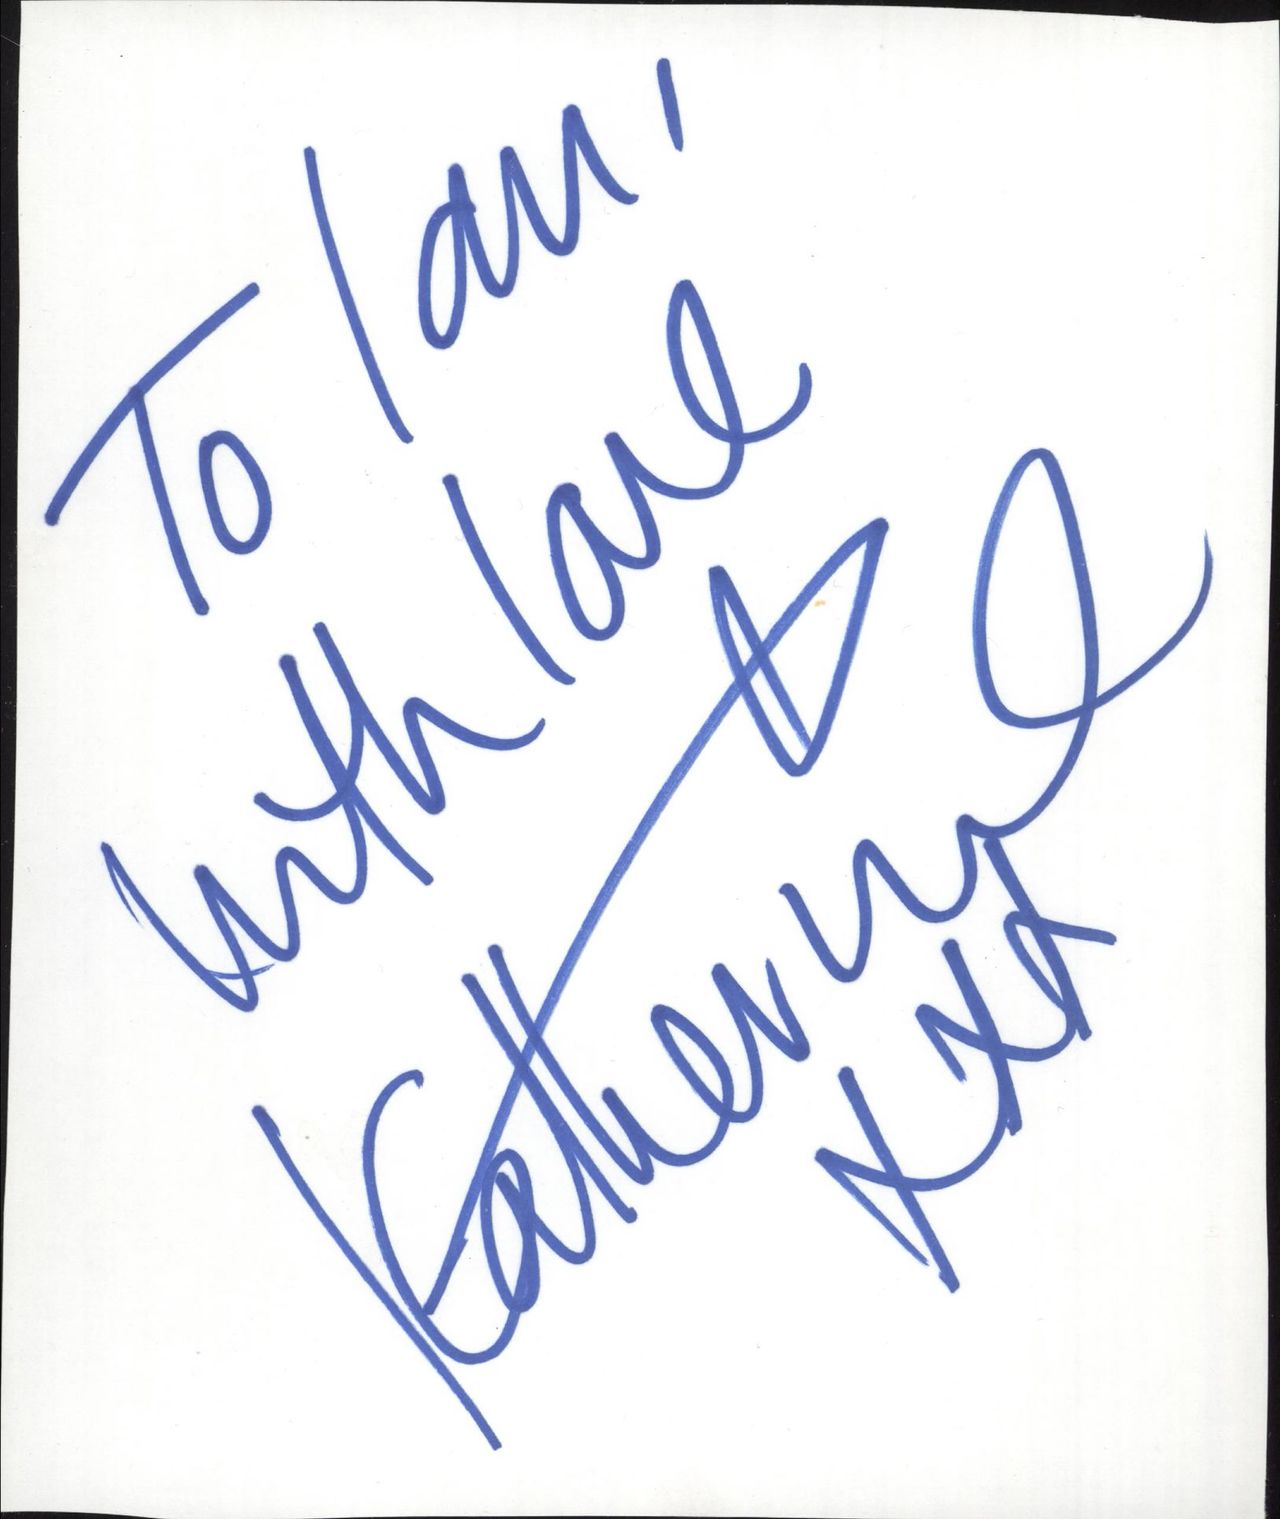 To Ian'
with love
Katherine
xxx